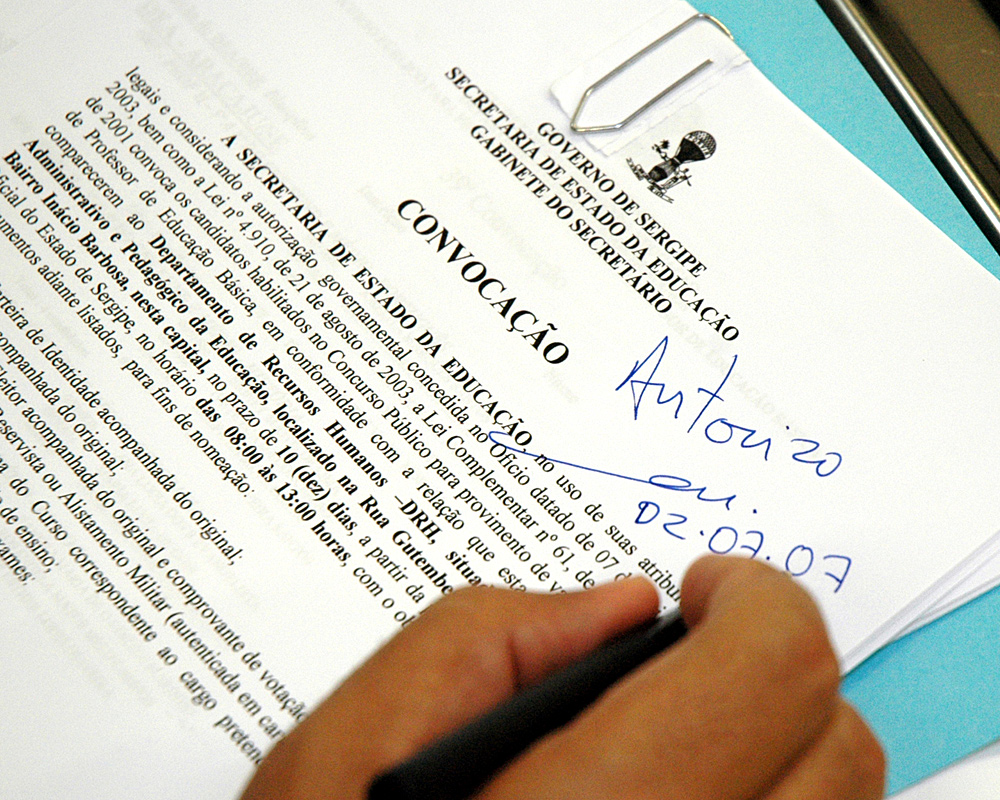 GOVERNO DE SERGIPE
SECRETARIA DE ESTADO DA EDUCAÇÃO
GABINETE DO SECRETÁRIO
CONVOCAÇÃO
Autorizo
em.
02.07.07
A SECRETARIA DE ESTADO DA EDUCAÇÃO, no uso de suas atribu
legais e considerando a autorização governamental concedida no Ofício datado de 07 d
2003, bem como a Lei nº 4.910, de 21 de agosto de 2003, a Lei Complementar nº 61, de
de 2001 convoca os candidatos habilitados no Concurso Público para provimento de v
de Professor de Educação Básica, em conformidade com a relação que esta
comparecerem ao Departamento de Recursos Humanos –DRH, situa
Administrativo e Pedagógico da Educação, localizado na Rua Gutembe
Bairro Inácio Barbosa, nesta capital, no prazo de 10 (dez) dias, a partir da
icial do Estado de Sergipe, no horário das 08:00 às 13:00 horas, com o ob
umentos adiante listados, para fins de nomeação:
rteira de Identidade acompanhada do original;
ompanhada do original;
leitor acompanhada do original e comprovante de votação
eservista ou Alistamento Militar (autenticada em car
do Curso correspondente ao cargo preten
de ensino;